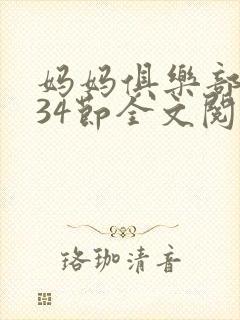 妈妈俱乐部
34节全文阅
珞珈清音